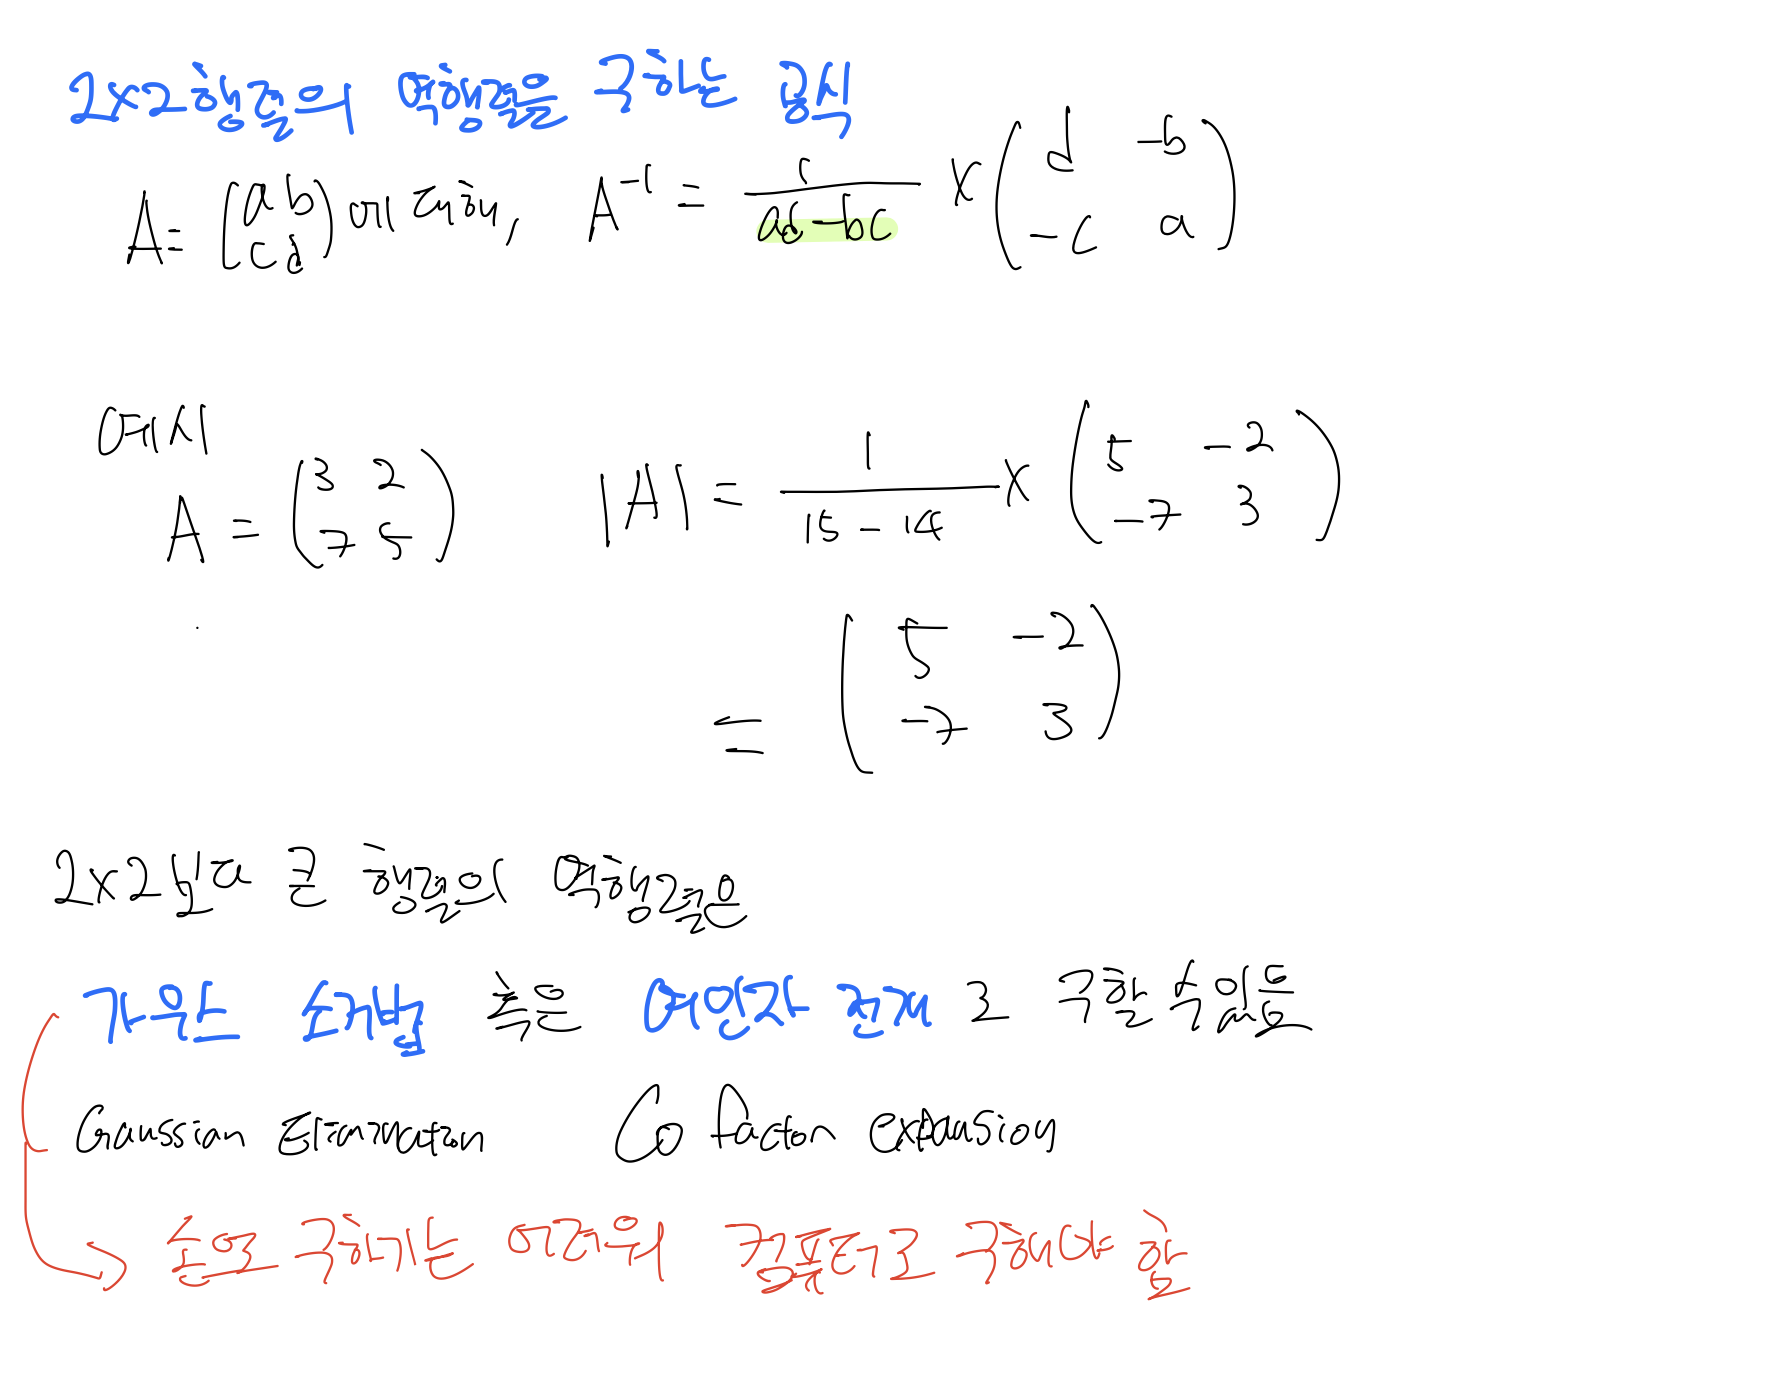 2x2행렬의 역행렬을 구하는 공식
A = (a b c d) 에 대해, A⁻¹ = 1/(ad-bc) × (d -b -c a)
예시
A = (3 2 7 5) |A| = 1/(15-14) × (5 -2 -7 3)
= (5 -2 -7 3)
2x2보다 큰 행렬의 역행렬은
가우스 소거법 혹은 여인자 전개로 구할 수 있음
Gaussian Elimination Cofactor expansion
손으로 구하기는 어려워 컴퓨터로 구해야 함